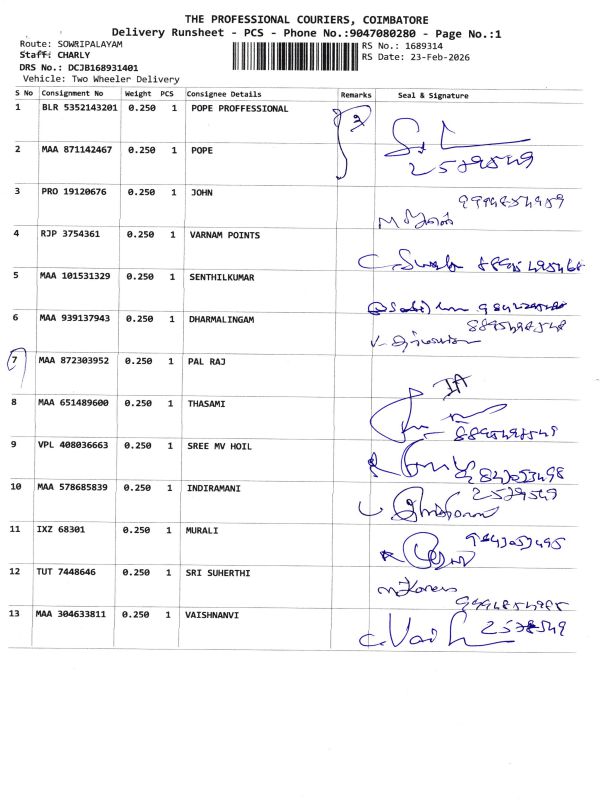 THE PROFESSIONAL COURIERS, COIMBATORE
Delivery Runsheet - PCS - Phone No.:9047080280 - Page No.:1
Route: SOWRIPALAYAM
Staff: CHARLY
DRS No.: DCJB168931401
Vehicle: Two Wheeler Delivery
RS No.: 1689314
RS Date: 23-Feb-2026
S No Consignment No Weight PCS Consignee Details Remarks Seal & Signature
1 BLR 5352143201 0.250 1 POPE PROFFESSIONAL
2 MAA 871142467 0.250 1 POPE
2579549
3 PRO 19120676 0.250 1 JOHN
4 RJP 3754361 0.250 1 VARNAM POINTS
5 MAA 101531329 0.250 1 SENTHILKUMAR
6 MAA 939137943 0.250 1 DHARMALINGAM
7 MAA 872303952 0.250 1 PAL RAJ
8 MAA 651489600 0.250 1 THASAMI
9 VPL 408036663 0.250 1 SREE MV HOIL
10 MAA 578685839 0.250 1 INDIRAMANI
2579549
11 IXZ 68301 0.250 1 MURALI
12 TUT 7448646 0.250 1 SRI SUHERTHI
13 MAA 304633811 0.250 1 VAISHNANVI